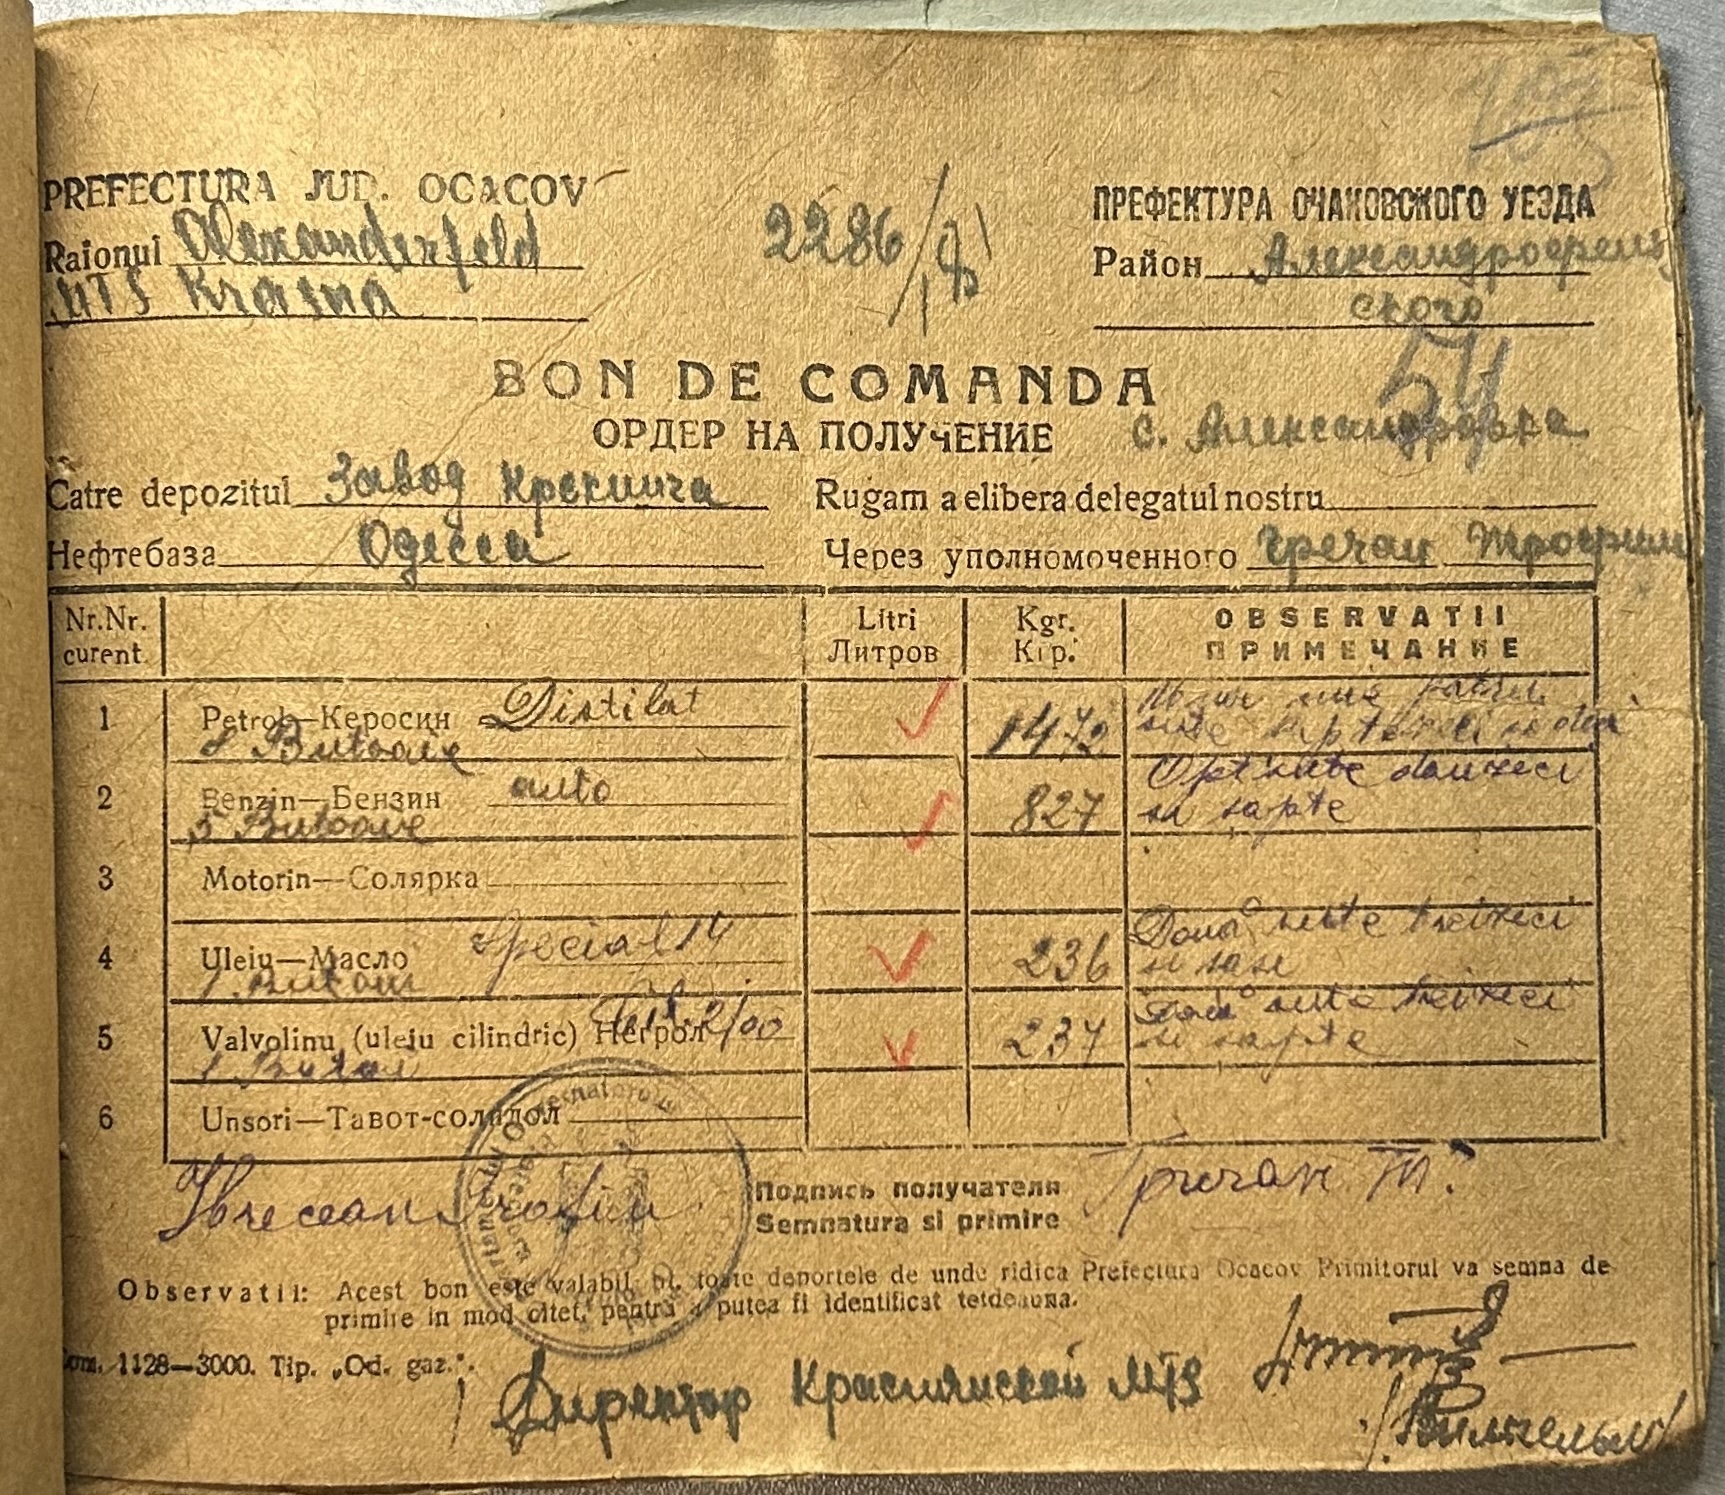 PREFECTURA JUD. OCACOV
Raionul Alexanderfeld
MTS Krasna
2286
ПРЕФЕКТУРА ОЧАКОВСКОГО УЕЗДА
Район Александрофельд
ского
54
BON DE COMANDA
ОРДЕР НА ПОЛУЧЕНИЕ
с. Александровка
Catre depozitul Завод
Нефтебаза Одесса
Rugam a elibera delegatul nostru
Через уполномоченного Гречан Трофим
Nr.Nr. curent. Litri Литров Kgr. Кгр. OBSERVATII ПРИМЕЧАНИЕ
1 Petrol—Керосин Distilat 1472
8 Butoaie
2 Benzin—Бензин auto 827 Opt sute douzeci
5 Butoaie si sapte
3 Motorin—Солярка
4 Uleiu—Масло Special 14 236 Doua sute treizeci
1 Butoiu si sase
5 Valvolinu (uleiu cilindric) Негрол 2/00 237 Doua sute treizeci
1 Butoi si sapte
6 Unsori—Тавот-солидол
Trofim
Подпись получателя
Semnatura si primire
Гречан Т.
Observatii: Acest bon este valabil pt. toate deportele de unde ridica Prefectura Ocacov Primitorul va semna de
primire in mod citet, pentru a putea fi identificat tetdeauna.
Com. 1128—3000. Tip. „Od. gaz.".
Директор Краснянской MTS
/Вильгельм/